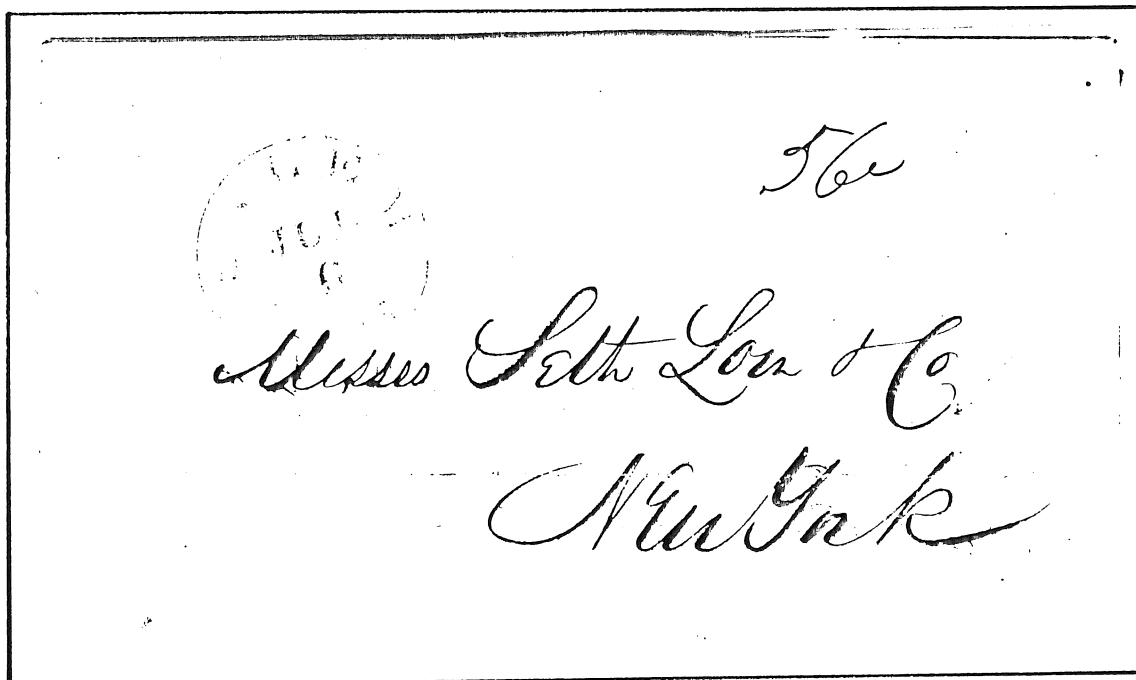 56
JUL
6
Messrs Seth Low & Co
New York